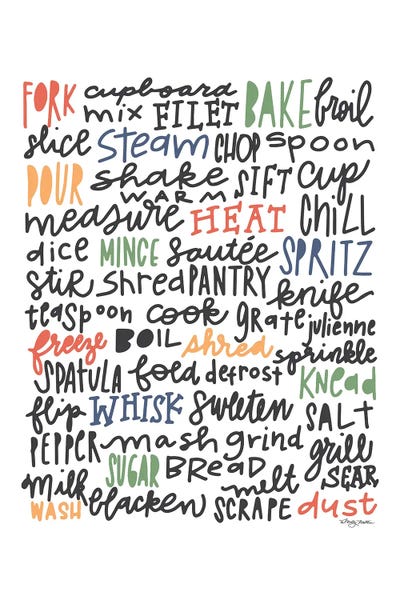 FORK cupboard
mix FILET BAKE broil
slice Steam CHOP spoon
POUR shake SIFT cup
WARM
measure HEAT CHiLL
dice MINCE Sautée SPRITZ
StiR shred PANTRY knife
teaspoon cook grate julienne
freeze BOIL shred sprinkle
SPATULA fold defrost KNead
flip WHISK Sweeten SALT
PEPPER mash grind grill
SUGAR BReaD SEAR
Milk blacken melt
WASH SCRAPE dust